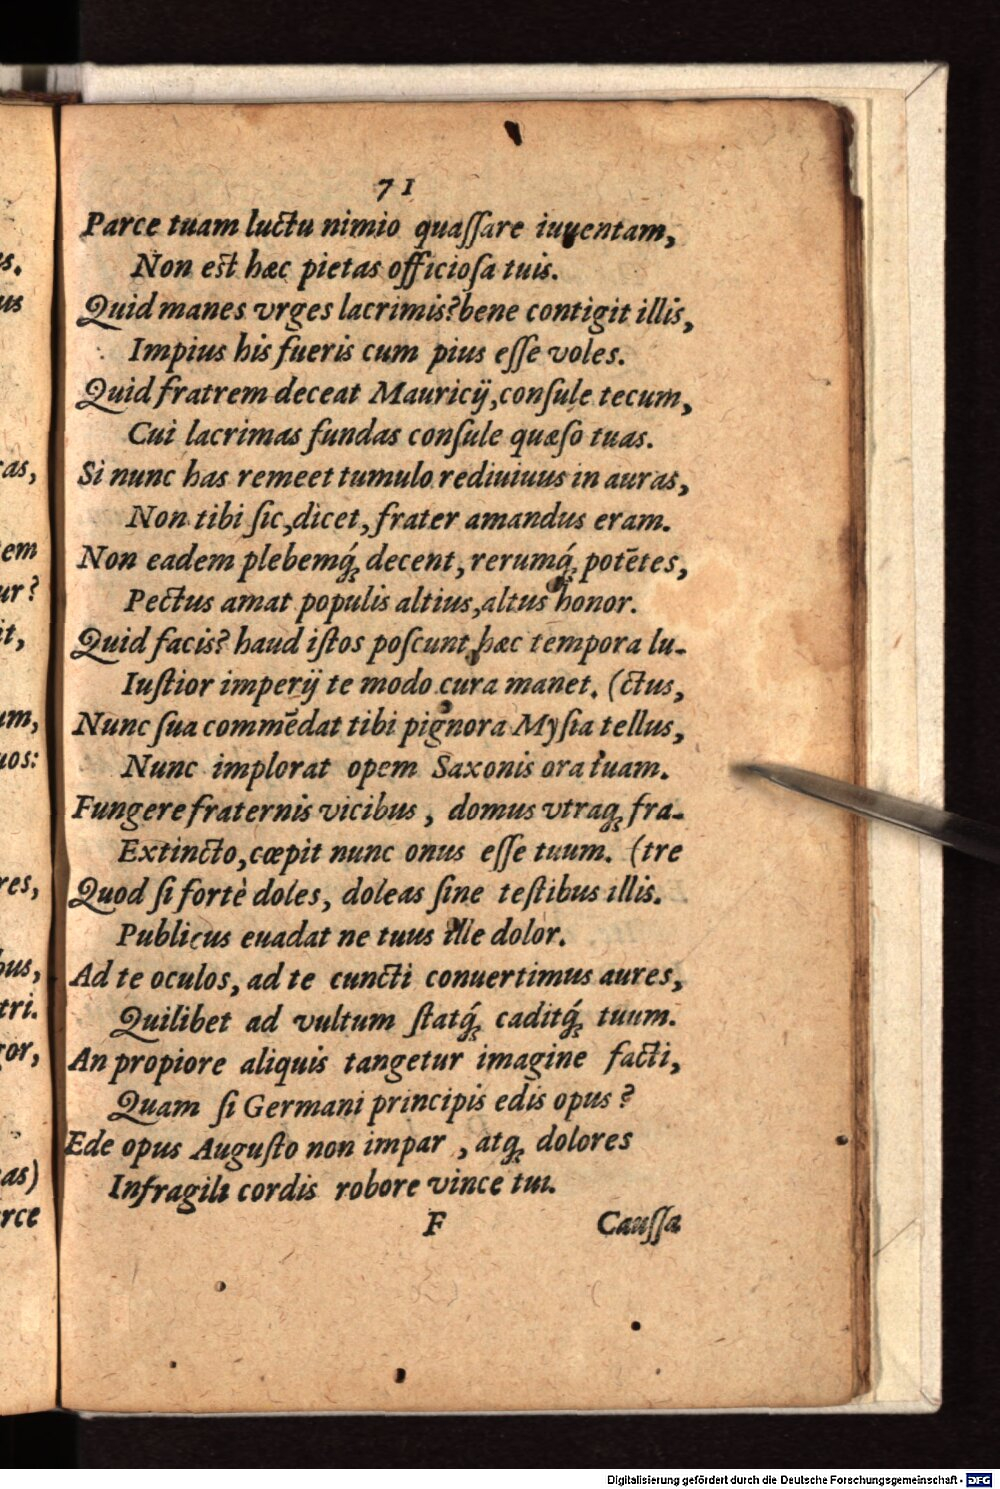 71
Parce tuam luctu nimio quaſſare iuuentam,
Non est hæc pietas officioſa tuis.
Quid manes vrges lacrimis? bene contigit illis,
Impius his fueris cum pius eſſe voles.
Quid fratrem deceat Mauricij, conſule tecum,
Cui lacrimas fundas conſule quæſo tuas.
Si nunc has remeet tumulo rediuiuus in auras,
Non tibi ſic, dicet, frater amandus eram.
Non eadem plebemq́; decent, rerumq́; potētes,
Pectus amat populis altius, altus honor.
Quid facis? haud iſtos poſcunt hæc tempora lu-
Iuſtior imperij te modo cura manet. (ctus,
Nunc ſua commēdat tibi pignora Myſia tellus,
Nunc implorat opem Saxonis ora tuam.
Fungere fraternis vicibus, domus vtraq; fra-
Extincto, cœpit nunc onus eſſe tuum. (tre
Quod ſi fortè doles, doleas ſine teſtibus illis.
Publicus euadat ne tuus ille dolor.
Ad te oculos, ad te cuncti conuertimus aures,
Quilibet ad vultum ſtatq́; caditq́; tuum.
An propiore aliquis tangetur imagine facti,
Quam ſi Germani principis edis opus?
Ede opus Auguſto non impar, atq; dolores
Infragili cordis robore vince tui.
F Cauſſa
s.
us
as,
tem
ur?
it,
um,
uos:
res,
bus,
tri.
ror,
as)
rce
Digitalisierung gefördert durch die Deutsche Forschungsgemeinschaft - DFG